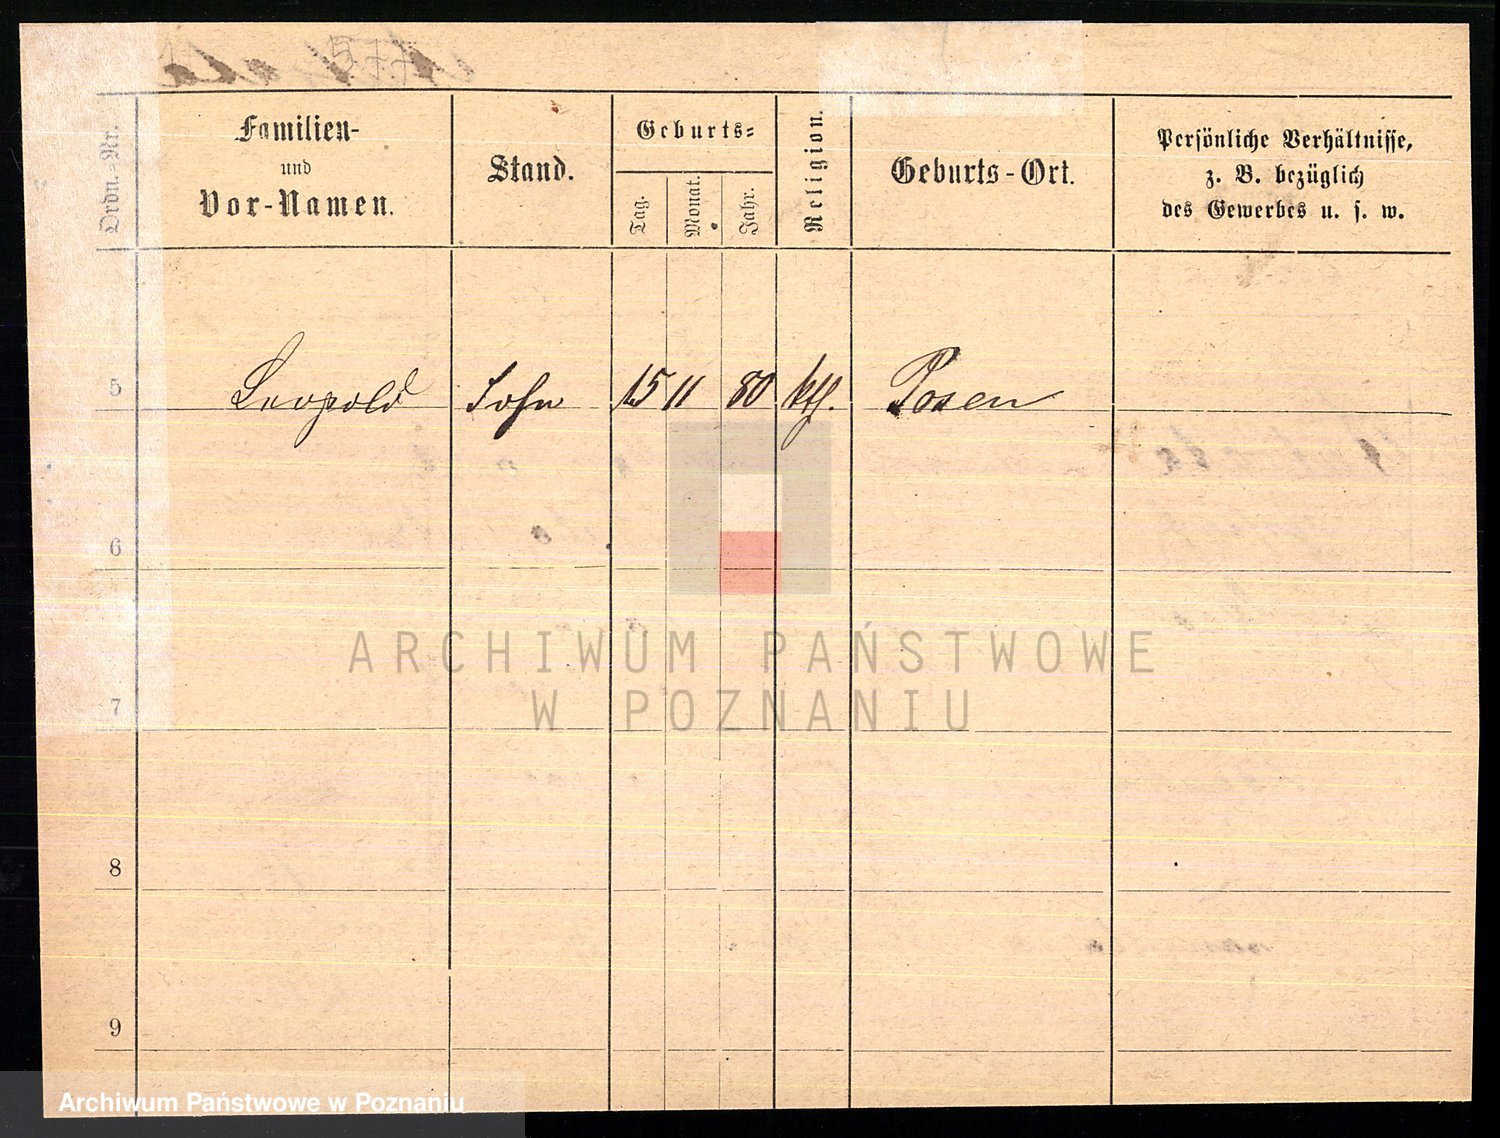 577
Ordn.-Nr.
Familien-
und
Vor-Namen.
Stand.
Geburts-
Tag.
Monat.
Jahr.
Religion.
Geburts-Ort.
Persönliche Verhältnisse,
z. B. bezüglich
des Gewerbes u. s. w.
5 Leopold Sohn 15 11 80 kth. Posen
6
7
8
9
ARCHIWUM PAŃSTWOWE
W POZNANIU
Archiwum Państwowe w Poznaniu